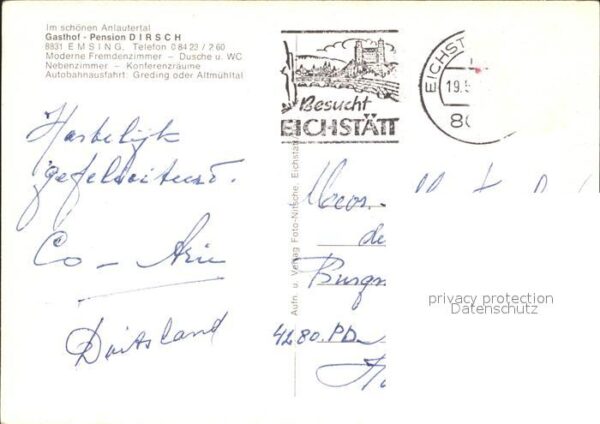 Im schönen Anlautertal
Gasthof - Pension DIRSCH
8831 EMSING, Telefon 0 84 23 / 2 60
Moderne Fremdenzimmer — Dusche u. WC
Nebenzimmer — Konferenzräume
Autobahnausfahrt: Greding oder Altmühltal
Besucht
EICHSTÄTT
EICHST
19.5
80
Hartelijk
gefeliciteerd.
Co - Arie
Duitsland
Aufn. u. Verlag Foto-Nitsche, Eichstätt
de
Burgm
4280.PD
privacy protection
Datenschutz